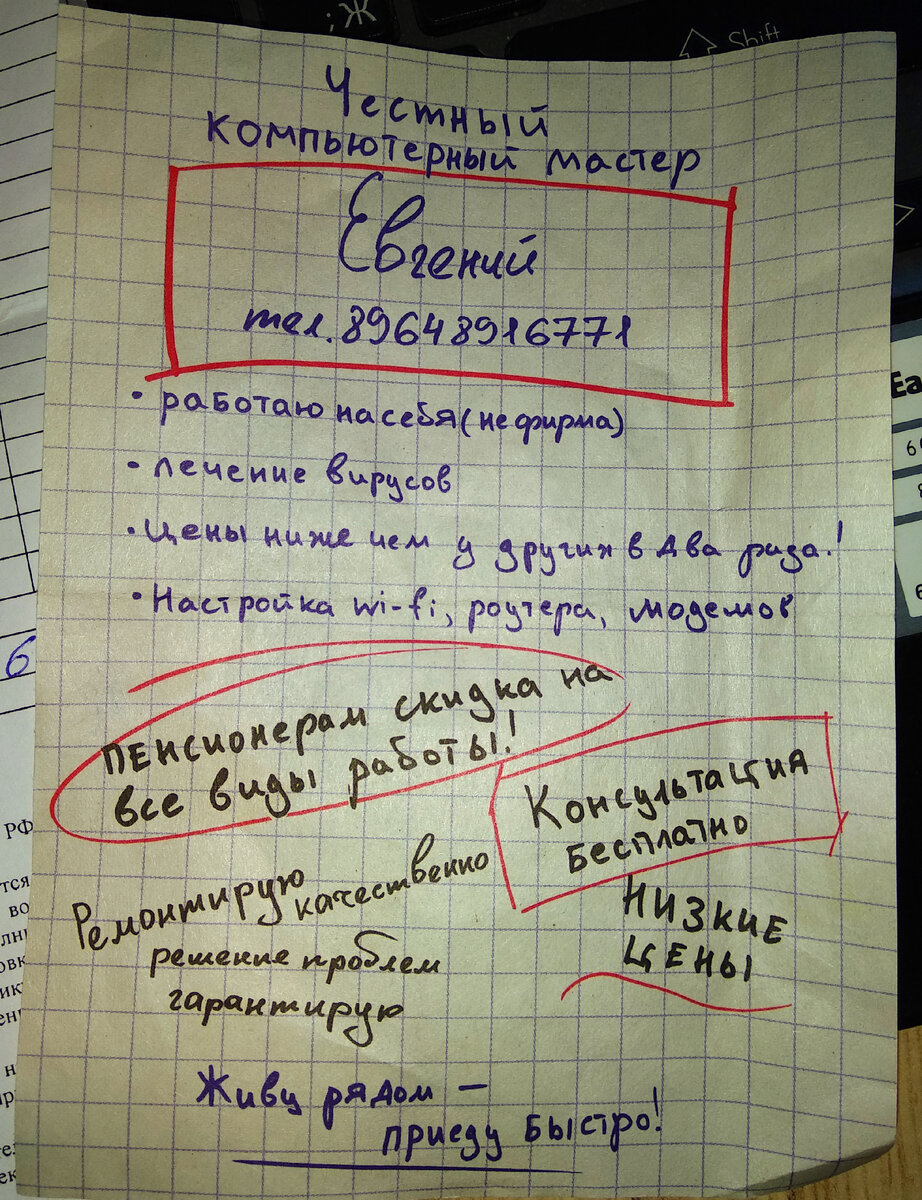 ;Ж
Shift
Честный
компьютерный мастер
Евгений
тел. 89648916771
• работаю на себя (не фирма)
• лечение вирусов
• Цены ниже чем у других в два раза!
• Настройка wi-fi, роутера, модемов
пенсионерам скидка на
все виды работы!
Консультация
бесплатно
Ремонтирую качественно
решение проблем
гарантирую
низкие
цены
Живу рядом —
приеду быстро!
6
РФ
Ea